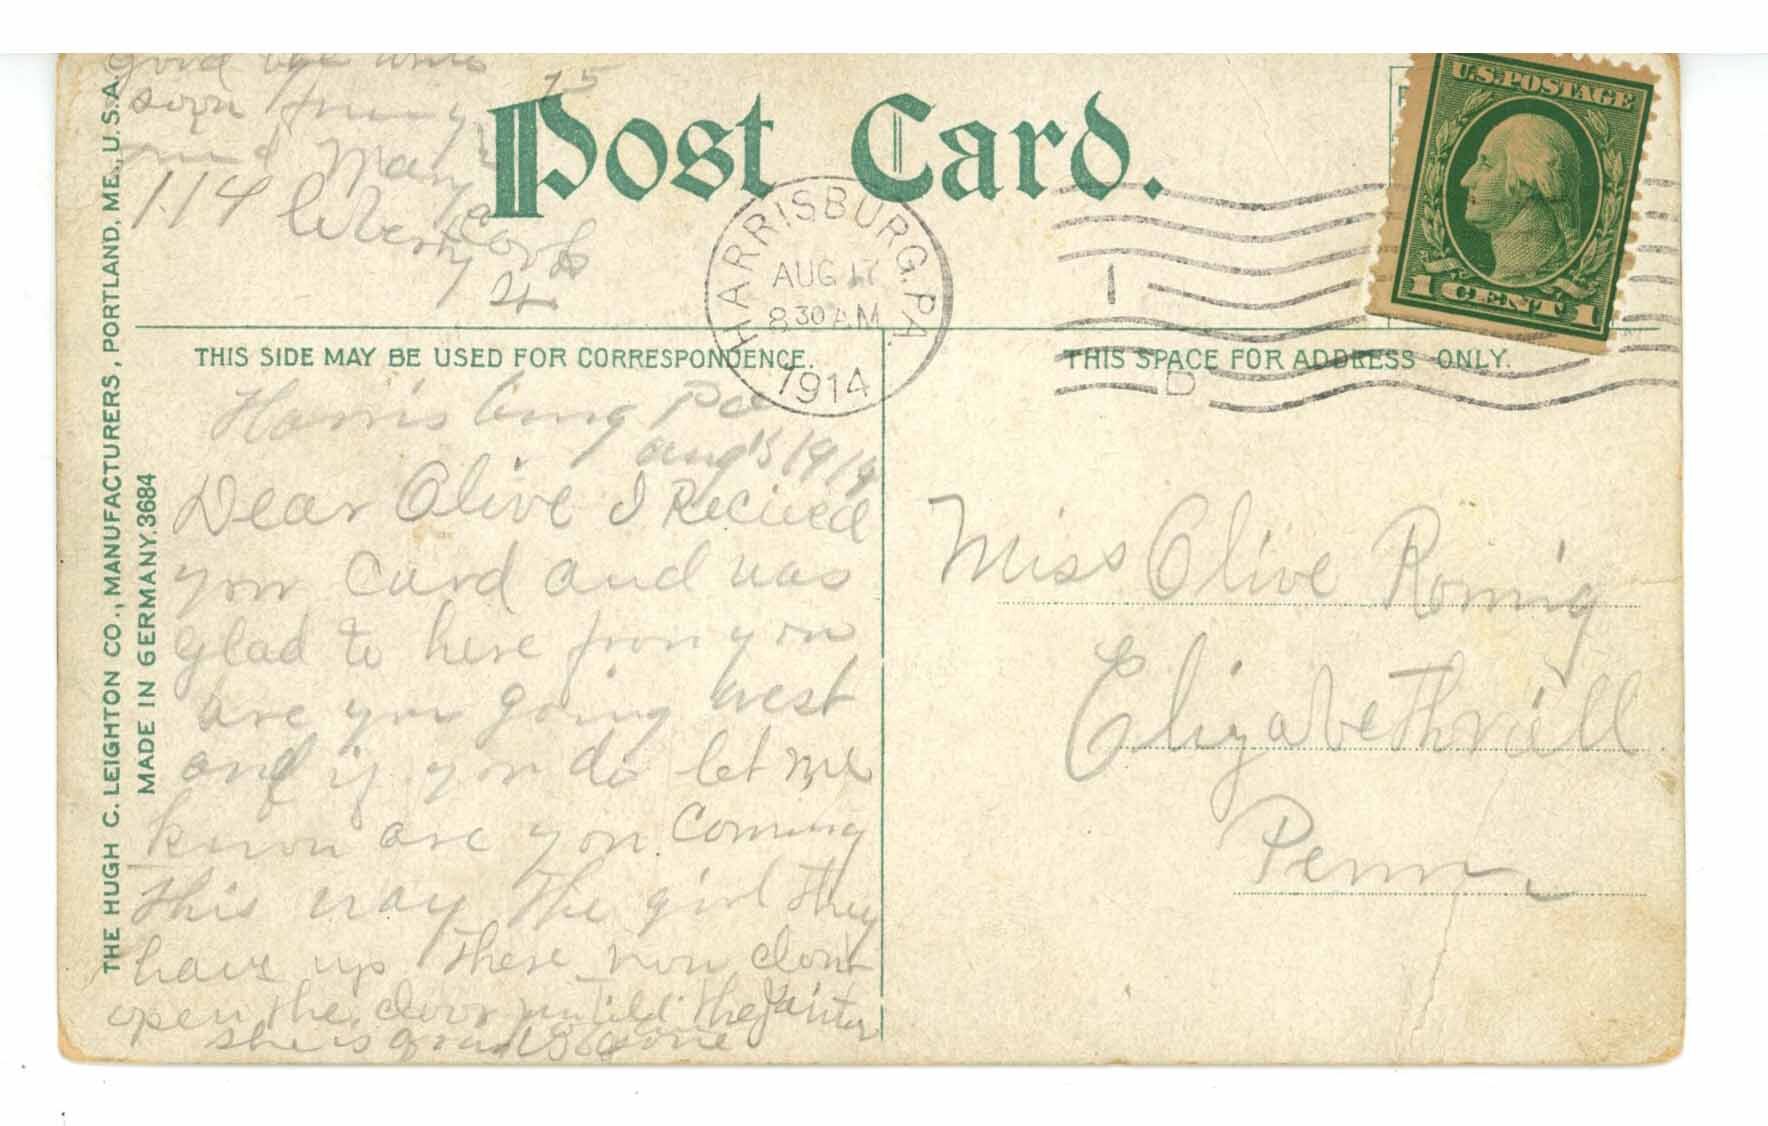 Post Card.
U.S. POSTAGE
1 CENT 1
HARRISBURG, PA.
AUG 17
8 30 AM
1914
1
D
THIS SIDE MAY BE USED FOR CORRESPONDENCE.
THIS SPACE FOR ADDRESS ONLY.
THE HUGH C. LEIGHTON CO., MANUFACTURERS, PORTLAND, ME., U.S.A.
MADE IN GERMANY. 3684
Harrisburg Pa
aug 15 1914
Dear Olive I Recieved
your Card and was
glad to here from you
are you going West
and if you do let me
know are you Coming
this way the girl they
have up there now dont
open the door until the
she is gone
good bye write
soon from your
Mary
114 liberty
Miss Olive Romig
Elizabethvill
Penn